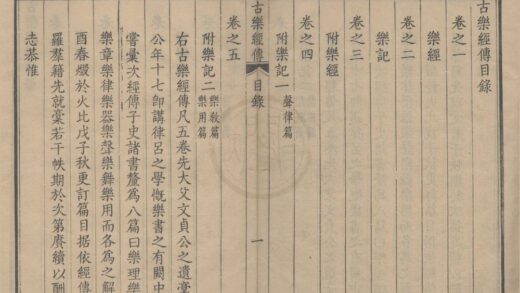 古樂經傳目錄
卷之一
樂經
卷之二
樂記
卷之三
附樂經
卷之四
附樂記一聲律篇
古樂經傳
目錄
一
卷之五
附樂記二樂教篇
樂用篇
右古樂經傳凡五卷先大父文貞公之遺稾
公年十七即講律呂之學慨樂書之有闕中
嘗彙次經傳子史諸書釐爲八篇曰樂理樂
樂章樂律樂器樂聲樂舞樂用而各爲之解
酉春燬於火比戊子秋更訂篇目据依經傳
羅羣籍先就稾若干帙期於次第賡續以酬
志恭惟